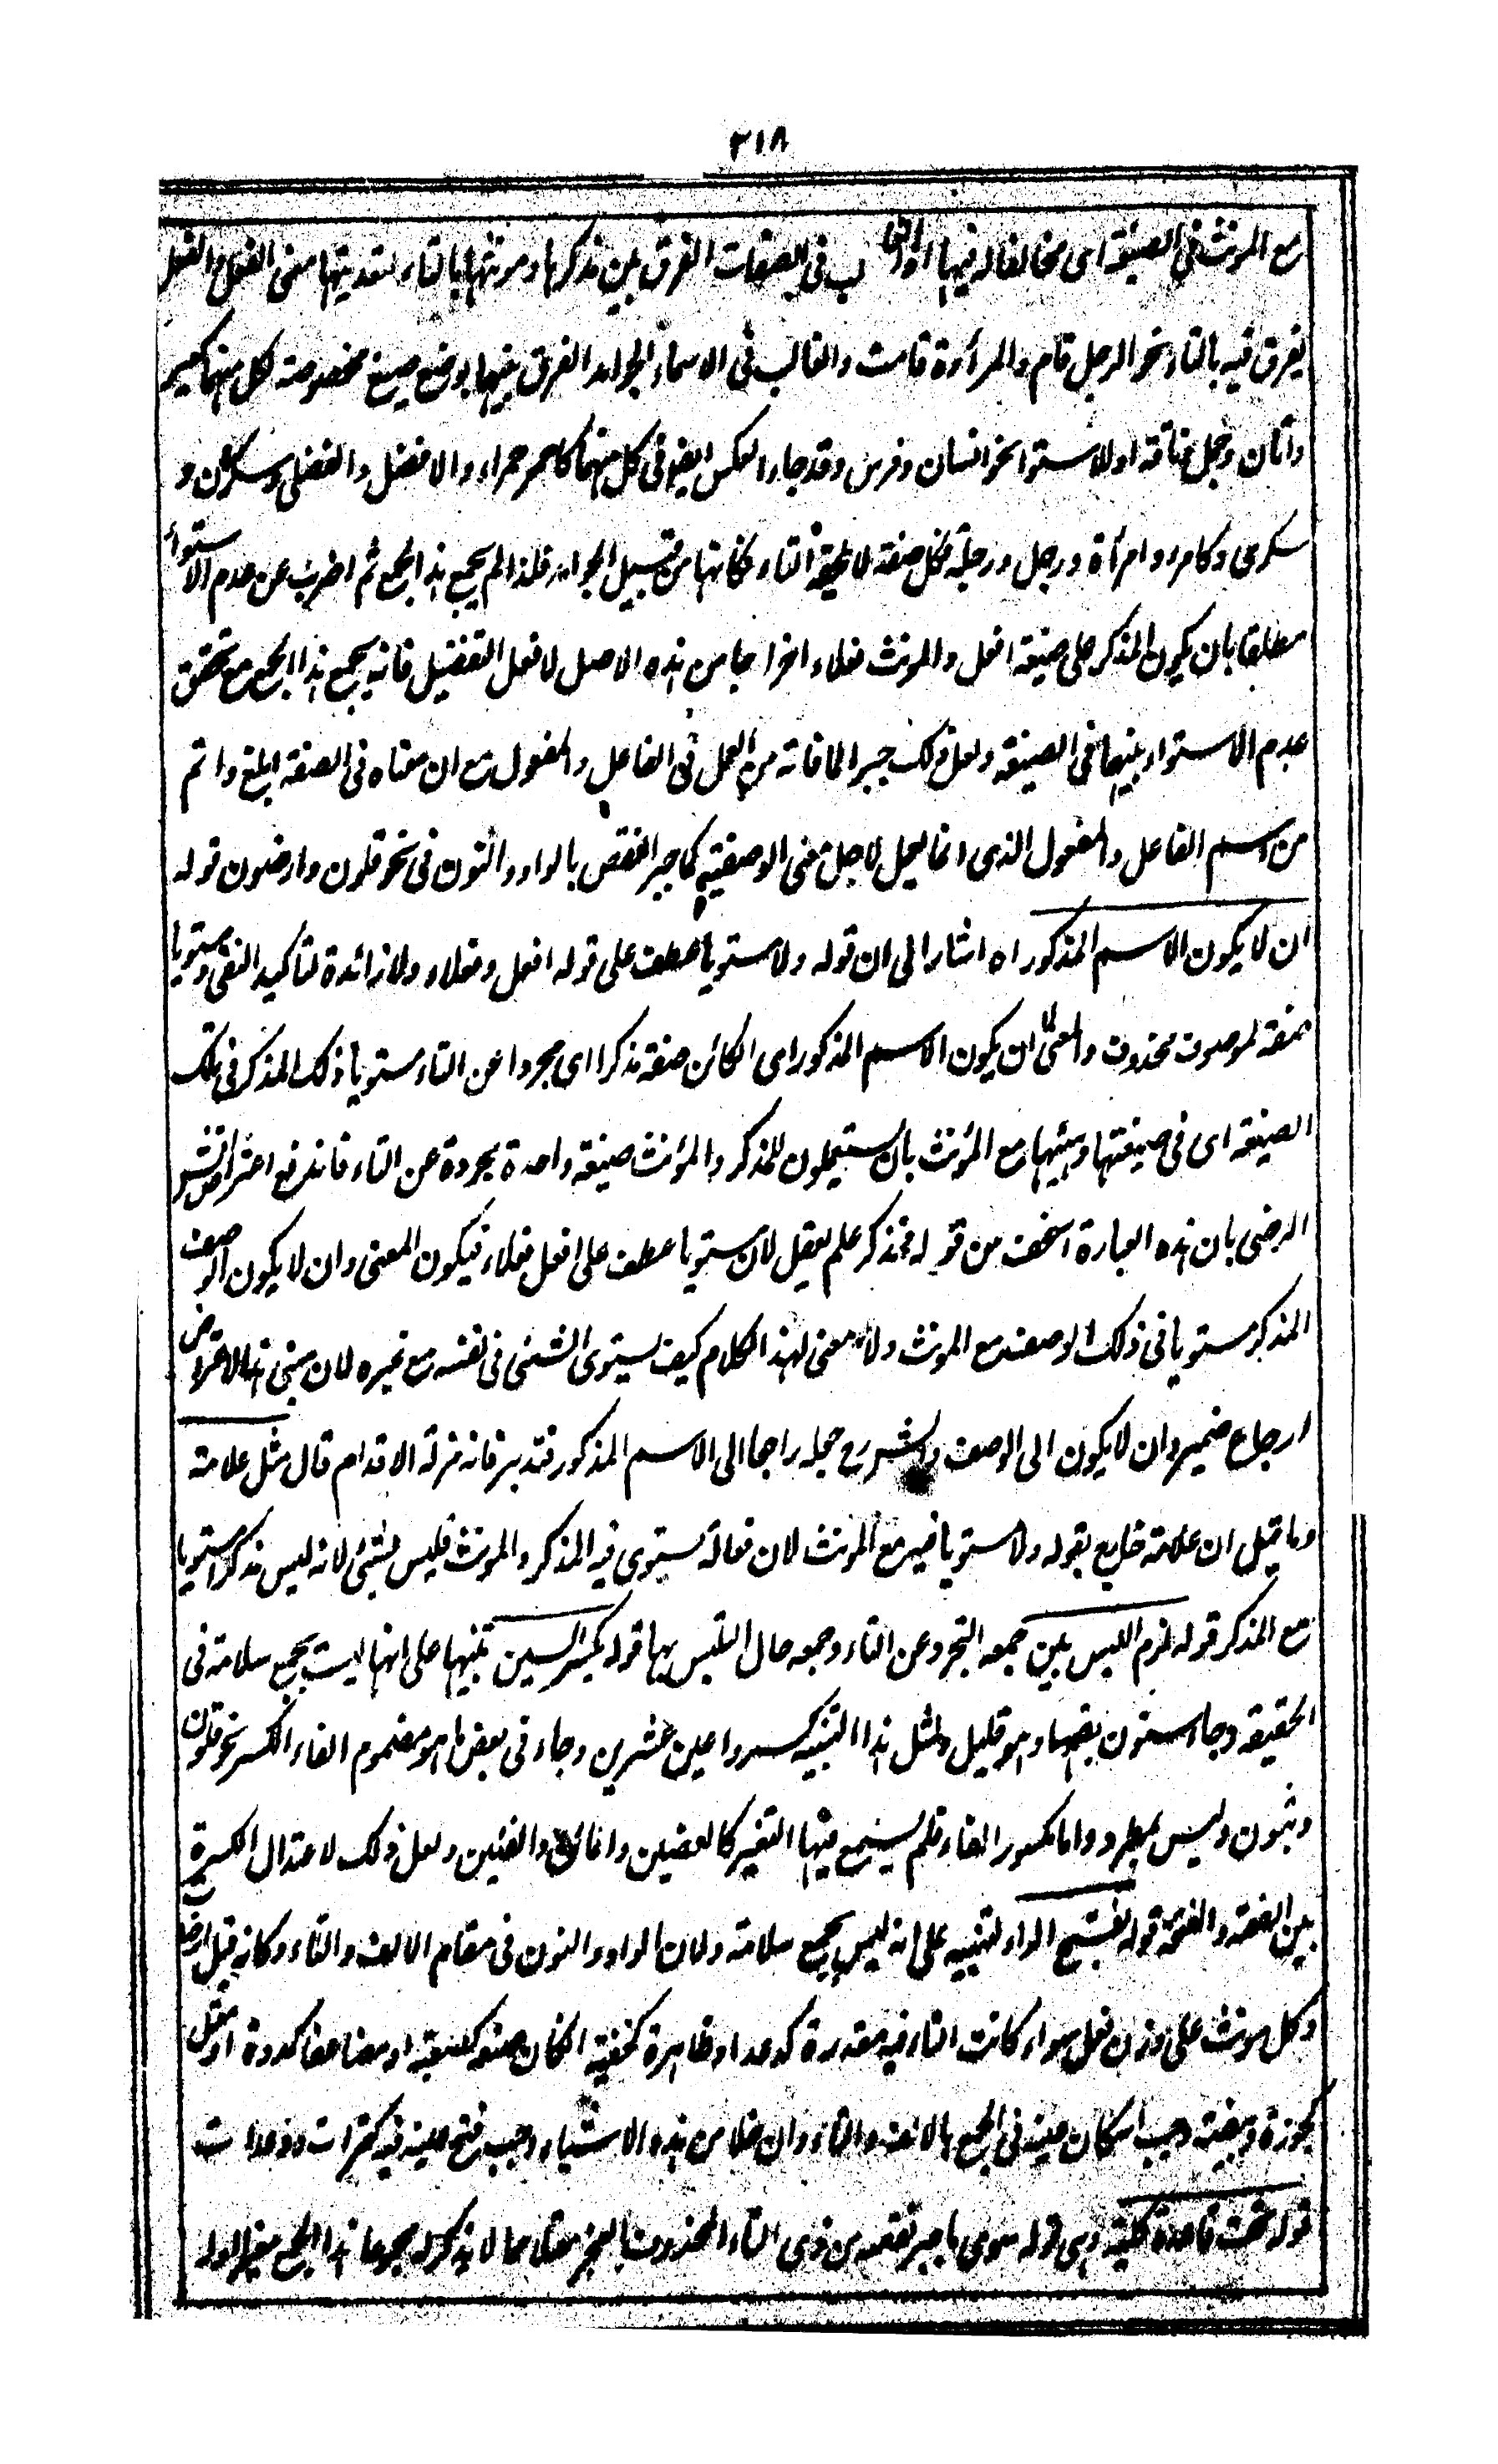 ٣١٨
مع المونث فى الصيغة اى مخالفا له فيها والغالب فى الصفات الفرق بين مذكرها ومونثها بالتاء لتعديتها معنى الفعل والفعل
يفرق فيه بالتاء نحو الرجل قام والمرأة قامت والغالب فى الاسماء الجوامد الفرق بينهما بوضع صيغ مخصوصة لكل منهما كعير
واتان وجمل وناقة اولا ستوا نحو انسان وفرس وقد جاء العكس ايضا فى كل منهما كاحمر حمراء والافضل والفضلى وسكران و
سكرى وكامرء وامرأة ورجل ورجلة فكل صفة لا تلحقه التاء فكانها من قبيل الجوامد فلذا لم يجمع هذا الجمع ثم اضرب عن عدم الاستواء
مطلقا بان يكون المذكر على صيغة افعل والمونث فعلاء اخراجا من هذه الاصل لافعل التفضيل فانه يجمع هذا الجمع مع تحقق
عدم الاستواء بينهما فى الصيغة ولعل ذلك جبر لما فاته من العمل فى الفاعل والمفعول مع ان معناه فى الصفة ابلغ واتم
من اسم الفاعل والمفعول الذى انما يعمل لاجل معنى الوصفية كما جبر النقص بالواو والنون فى نحو قلون وارضون قوله
ان لا يكون الاسم المذكور اه اشار الى ان قوله ولا مستويا عطف على قوله افعل وفعلاء ولا زائدة لتاكيد النفى ومستويا
صفة لموصوف محذوف والمعنى ان لا يكون الاسم المذكور اى الكائن صفة مذكرا اى مجردا عن التاء مستويا ذلك المذكر فى تلك
الصيغة اى فى صيغتها وهيئتها مع المؤنث بان يستعملون للمذكر والمؤنث صيغة واحدة مجردة عن التاء فاندفع اعتراض الشيخ
الرضى بان هذه العبارة اسخف من قوله فمذكر علم يعقل لان مستويا عطف على افعل فعلاء فيكون المعنى وان لا يكون الوصف
المذكر مستويا فى ذلك الوصف مع المونث ولا معنى لهذا الكلام كيف يستوى الشئ فى نفسه مع غيره لان مبنى هذا الاعتراض
ارجاع ضمير وان لا يكون الى الوصف والشرح جعله راجعا الى الاسم المذكور فتدبر فانه مزلة الاقدام قال مثل علامة
وما قيل ان علامة خارج بقوله ولا مستويا فيه مع المونث لان فعالة يستوى فيه المذكر والمونث فليس بشئ لانه ليس مذكرا مستويا
مع المذكر قوله لزم اللبس بين جمعه المجرد عن التاء وجمعه حال التلبس بها قوله بكسر السين تنبيها على انها ليست بجمع سلامة فى
الحقيقة وجاء سنون بضمها وهو قليل ولمثل هذا التنبيه كسروا عين عشرين وجاء فى بعض ما هو مضموم الفاء الكسر نحو قلون
وثبون وليس بمطرد واما مكسور الفاء فلم يسمع فيها التغير كالعضين والمئين ولعل ذلك لاعتدال الكسرة
بين الضمة والفتحة قوله بفتح الراء لتنبيه على انه ليس بجمع سلامة ولان الواو والنون فى مقام الالف والتاء وكانه قيل ارضات
وكل مونث على وزن فعل سواء كانت التاء فيه مقدرة كدعد او ظاهرة كجفنة ان كان صفة كصعبة او مضاعفا كمدة او معتل
كجوزة وبيضة وجب اسكان عينه فى الجمع بالالف والتاء وان خلا من هذه الاشياء وجب فتح عينه فيه كتمرات ودعدات
قوله تحت قاعدة كلية وهى قوله سوى ما جبر نقصه من ذى التاء المحذوف العجز معتلا مما لا يذكر له مجموعا هذا الجمع مغير اوله